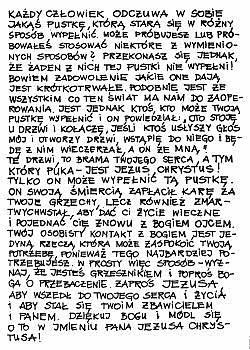 KAŻDY CZŁOWIEK ODCZUWA W SOBIE
JAKĄŚ PUSTKĘ, KTÓRĄ STARA SIĘ W RÓŻNY
SPOSÓB WYPEŁNIĆ. MOŻE PRÓBUJESZ LUB PRÓ-
BOWAŁEŚ STOSOWAĆ NIEKTÓRE Z WYMIENIO-
NYCH SPOSOBÓW? PRZEKONASZ SIĘ JEDNAK,
ŻE ŻADEN Z NICH TEJ PUSTKI NIE WYPEŁNI!
BOWIEM ZADOWOLENIE JAKIE ONE DAJĄ
JEST KRÓTKOTRWAŁE. PODOBNIE JEST ZE
WSZYSTKIM CO TEN ŚWIAT MA NAM DO ZAOFE-
ROWANIA. JEST JEDNAK KTOŚ, KTO MOŻE TWOJĄ
PUSTKĘ WYPEŁNIĆ I ON POWIEDZIAŁ: „OTO STOJĘ
U DRZWI I KOŁACZĘ, JEŚLI KTOŚ USŁYSZY GŁOS
MÓJ I OTWORZY DRZWI, WSTĄPIĘ DO NIEGO I BĘ-
DĘ Z NIM WIECZERZAŁ, A ON ZE MNĄ."
TE DRZWI, TO BRAMA TWOJEGO SERCA, A TYM
KTÓRY PUKA - JEST JEZUS CHRYSTUS!
TYLKO ON MOŻE WYPEŁNIĆ TĄ PUSTKĘ.
ON SWOJĄ ŚMIERCIĄ ZAPŁACIŁ KARĘ ZA
TWOJE GRZECHY, LECZ RÓWNIEŻ ZMAR-
TWYCHWSTAŁ, ABY DAĆ CI ŻYCIE WIECZNE
I POJEDNAĆ CIĘ ZNOWU Z BOGIEM OJCEM.
TWÓJ OSOBISTY KONTAKT Z BOGIEM JEST JE-
DYNĄ RZECZĄ, KTÓRA MOŻE ZASPOKOIĆ TWOJĄ
POTRZEBĘ, PONIEWAŻ TEGO NAJBARDZIEJ PO-
TRZEBUJESZ. W PROSTY WIĘC SPOSÓB - WYZ-
NAJ, ŻE JESTEŚ GRZESZNIKIEM I POPROŚ BO-
GA O PRZEBACZENIE. ZAPROŚ JEZUSA,
ABY WSZEDŁ DO TWOJEGO SERCA I ŻYCIA
I ABY STAŁ SIĘ TWOIM ZBAWICIELEM
I PANEM. DZIĘKUJ BOGU I MÓDL SIĘ
O TO W IMIENIU PANA JEZUSA CHRYS-
TUSA!